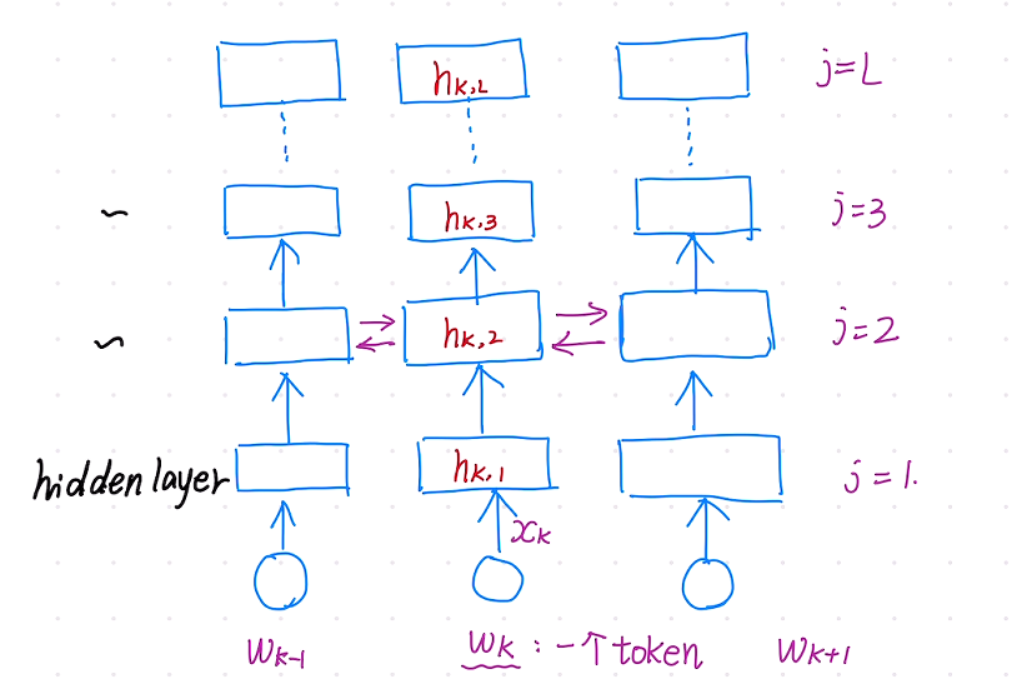 h_{k,L} j=L
~ h_{k,3} j=3
~ h_{k,2} j=2
hidden layer h_{k,1} j=1.
x_k
w_{k-1} w_k : 一个token w_{k+1}